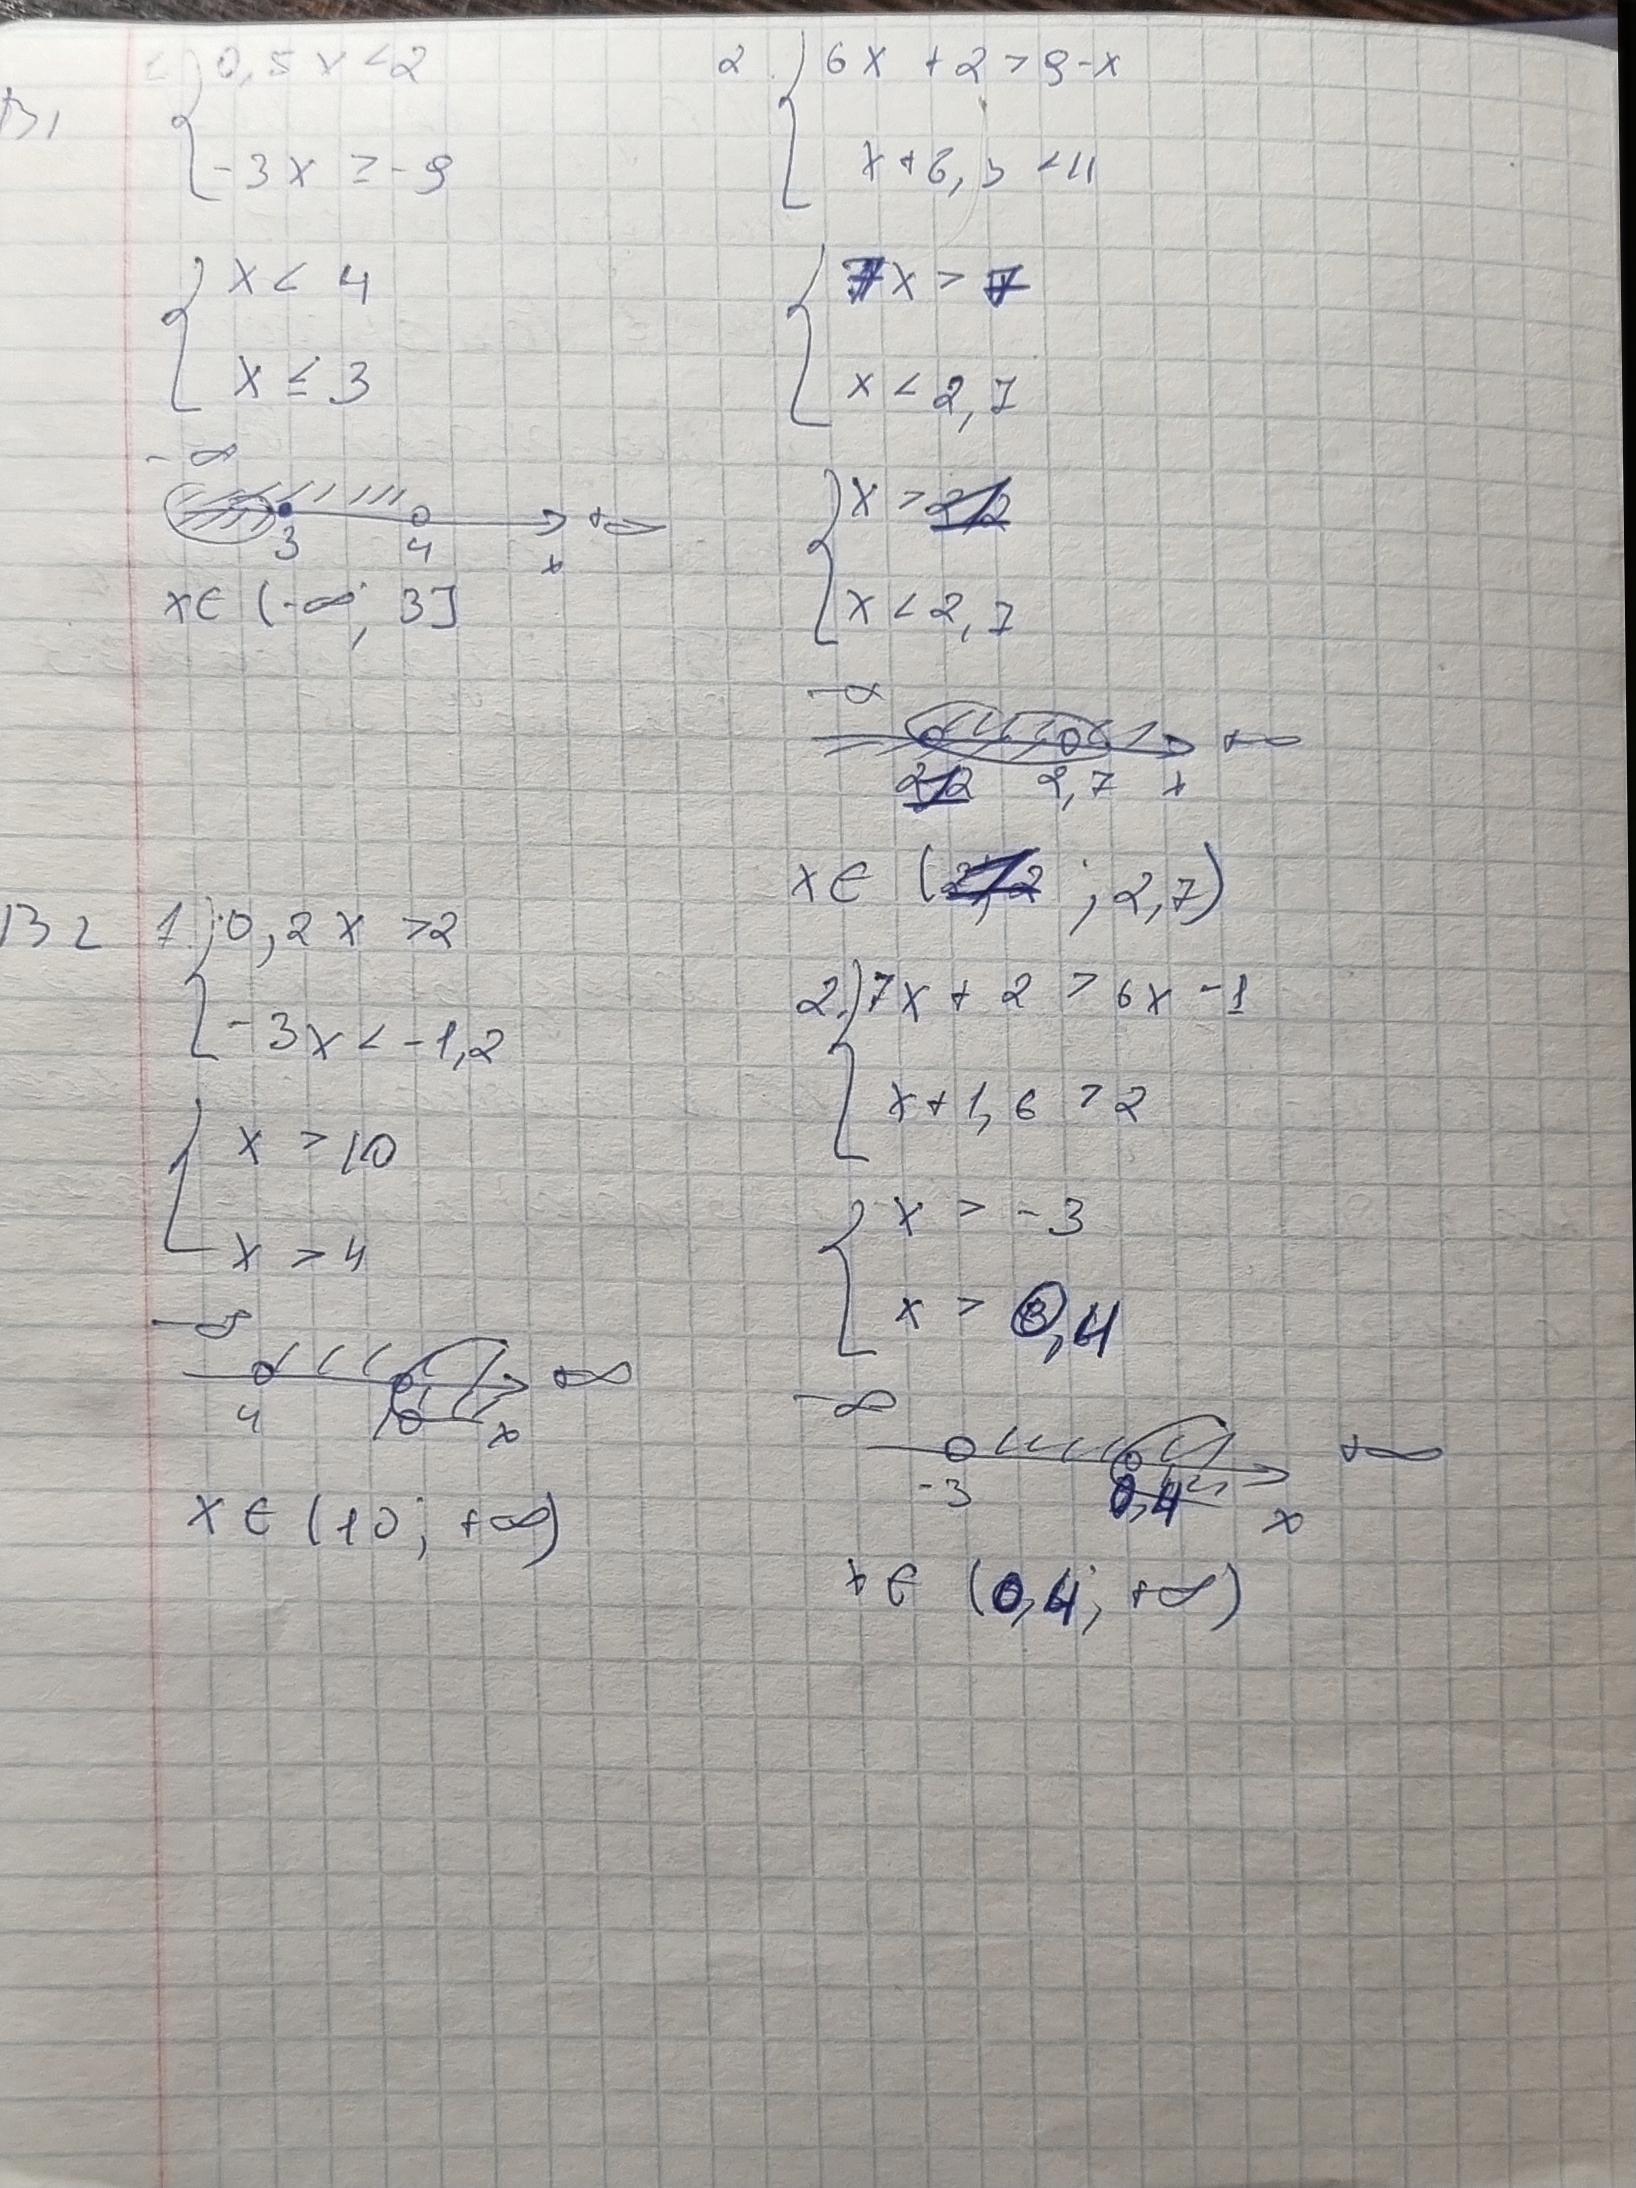 В1
1. 0,5x < 2
-3x ≥ -9
x < 4
x ≤ 3
-∞ +∞
3 4 x
x ∈ (-∞; 3]
2. 6x + 2 > 9-x
x + 6,3 < 11
7x > 7
x < 2,7
x >
x < 2,7
-∞ +∞
2,7 x
x ∈ ( ; 2,7)
В2
1. 0,2x > 2
-3x < -1,2
x > 10
x > 4
-∞ +∞
4 10 x
x ∈ (10; +∞)
2. 7x + 2 > 6x - 1
x + 1,6 > 2
x > -3
x > 0,4
-∞ +∞
-3 0,4 x
x ∈ (0,4; +∞)